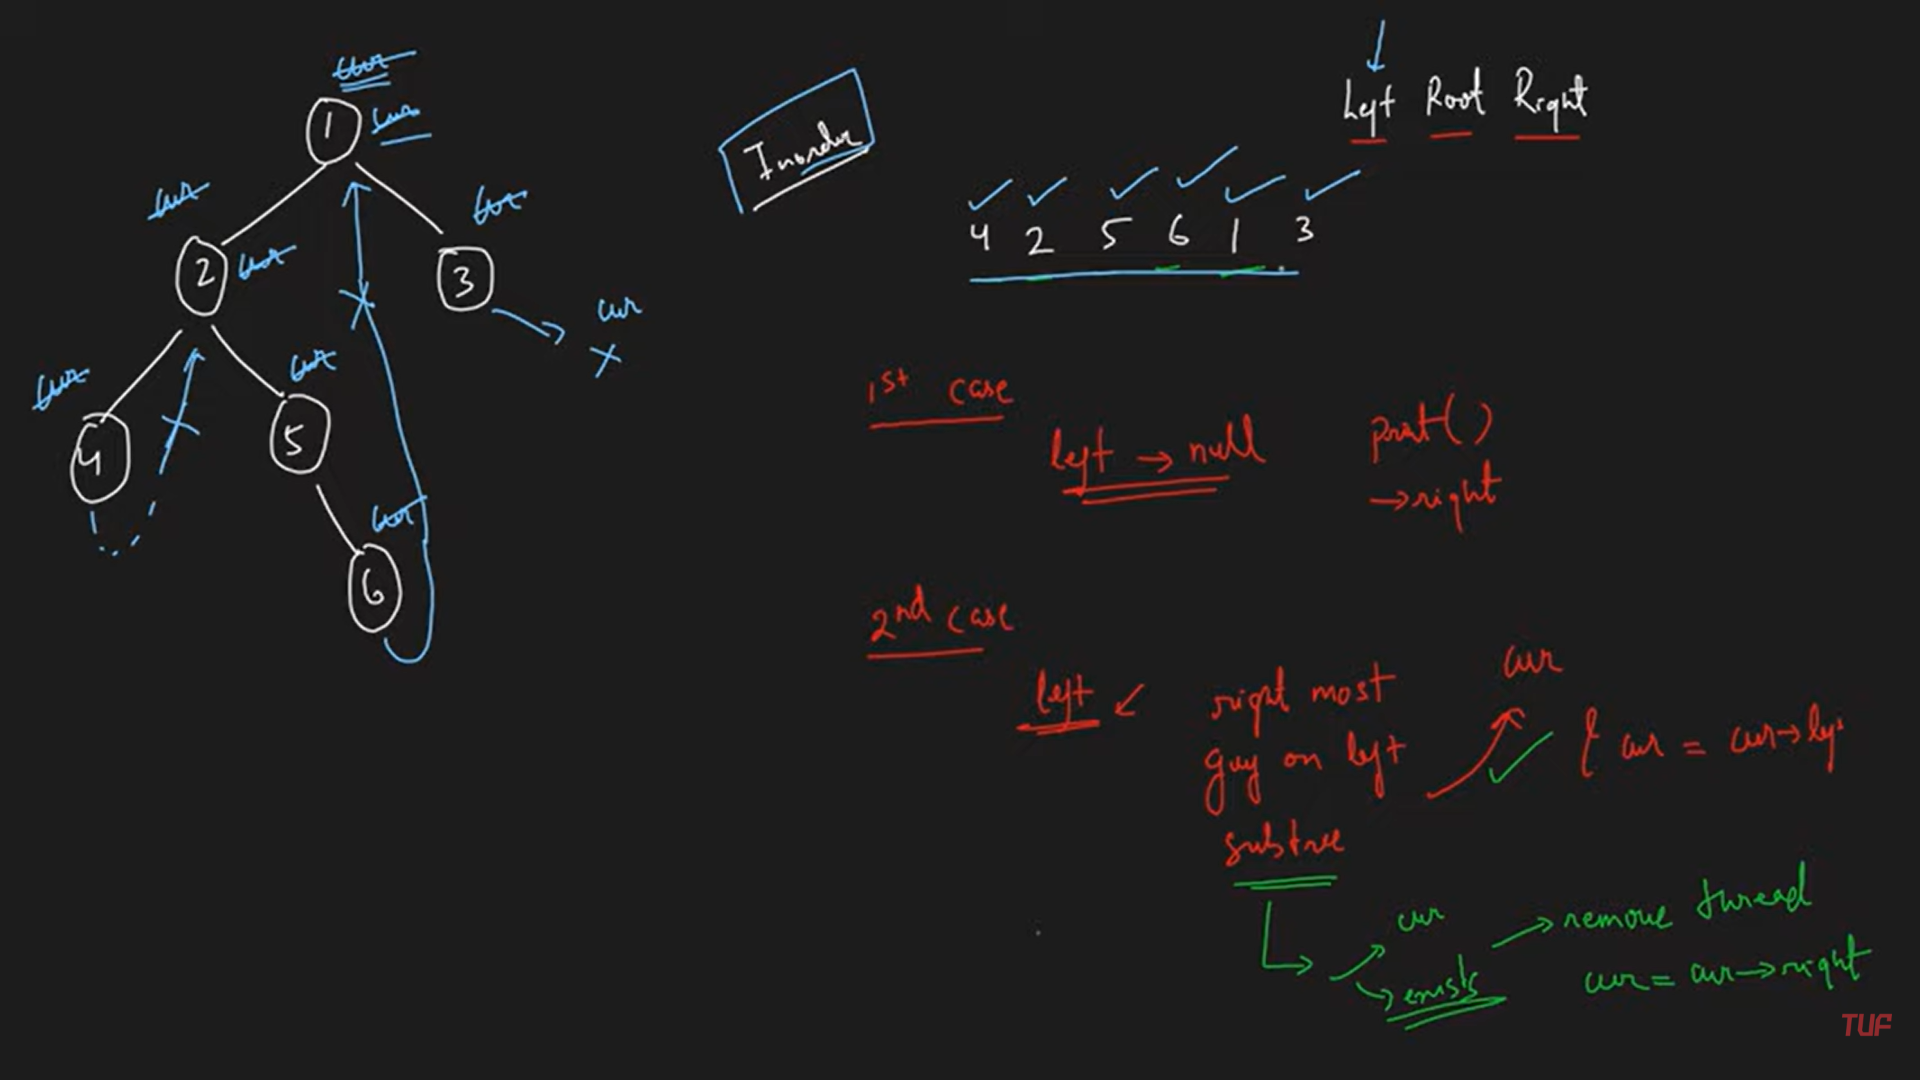 cur
cur
1
cur
2
cur
cur
3
cur
cur
4
cur
5
cur
6
Inorder
Left Root Right
4 2 5 6 1 3
1st case
left → null
print()
→ right
2nd case
left
right most
guy on left
subtree
cur
{ cur = cur→lef
cur
exists
→ remove thread
cur = cur→right
TUF